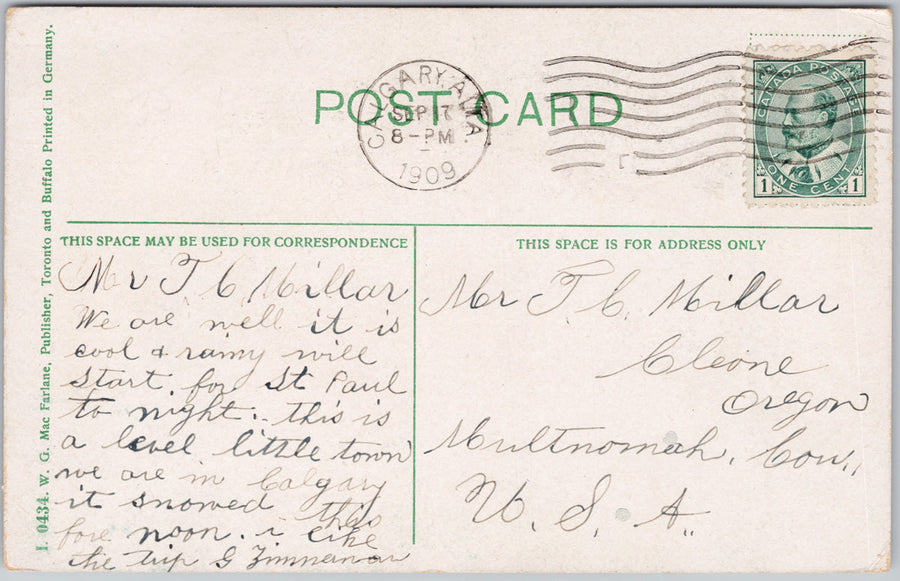 I. 0434. W. G. Mac Farlane, Publisher, Toronto and Buffalo Printed in Germany.
POST CARD
CALGARY, ALTA
SEP 17
8-PM
1909
CANADA POSTAGE
1 ONE CENT 1
THIS SPACE MAY BE USED FOR CORRESPONDENCE
Mr T C Millar
We are well it is
cool & rainy will
start for St Paul
to night. this is
a level little town
we are in Calgary
it snowed this
fore noon. i like
the trip G Zimmerman
THIS SPACE IS FOR ADDRESS ONLY
Mr T. C. Millar
Cleone
Oregon
Multnomah, Cou.,
U. S. A.